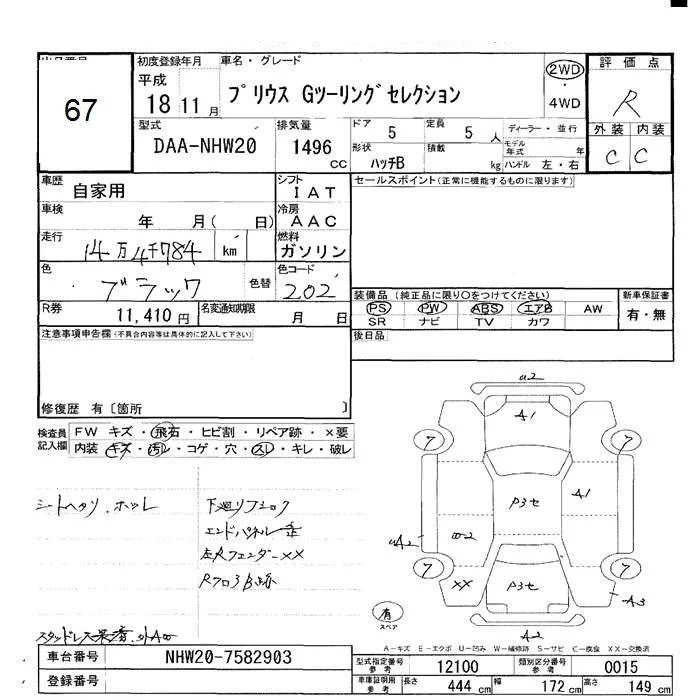 67
初度登録年月
平成
18 11月
車名・グレード
プリウス Gツーリングセレクション
2WD
・
4WD
評価点
R
外装 内装
C C
型式
DAA-NHW20
排気量
1496
CC
ドア 5
定員 5 人
形状
ハッチB
積載
kg
ディーラー・並行
モデル年式 年
ハンドル 左・右
車歴
自家用
シフト
IAT
セールスポイント(正常に機能するものに限ります)
車検
年 月( 日)
冷房
AAC
走行
14万4千784 km
燃料
ガソリン
色
ブラック
色替
色コード
202
R券
11,410円
名変通知期限
月 日
装備品(純正品に限り○をつけてください)
PS PW ABS エアB AW
SR ナビ TV カワ
新車保証書
有・無
注意事項申告欄(不具合内容等は具体的に記入して下さい)
後日品
修復歴 有〔箇所 〕
検査員記入欄
FW キズ・飛石・ヒビ割・リペア跡・×要
内装 キズ・汚レ・コゲ・穴・スレ・キレ・破レ
シートヘタリ、ホツレ
エンドパネル
左RフェンダーXX
U2
A1
7
7
P3セ
A1
UA2
W2
7
7
XX
P3セ
A3
A2
有
スペア
A-キズ E-エクボ U-凹み W-補修跡 S-サビ C-腐食 XX-交換済
車台番号
NHW20-7582903
登録番号
型式指定番号
参考
12100
類別区分番号
参考
0015
車庫証明用
参考
長さ 444 cm
幅 172 cm
高さ 149 cm